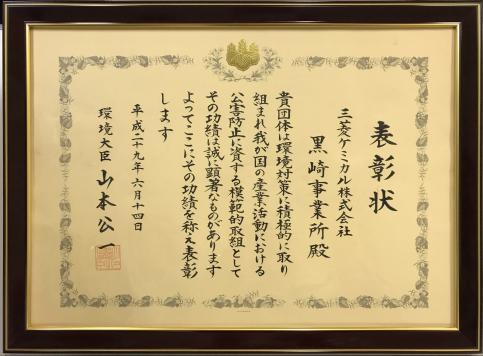 表彰状
三菱ケミカル株式会社
黒崎事業所殿
貴団体は環境対策に積極的に取り
組まれ我が国の産業活動における
公害防止に資する模範的取組として
その功績は誠に顕著なものがあります
よってここにその功績を称え表彰
します
平成二十九年六月十四日
環境大臣 山本公一